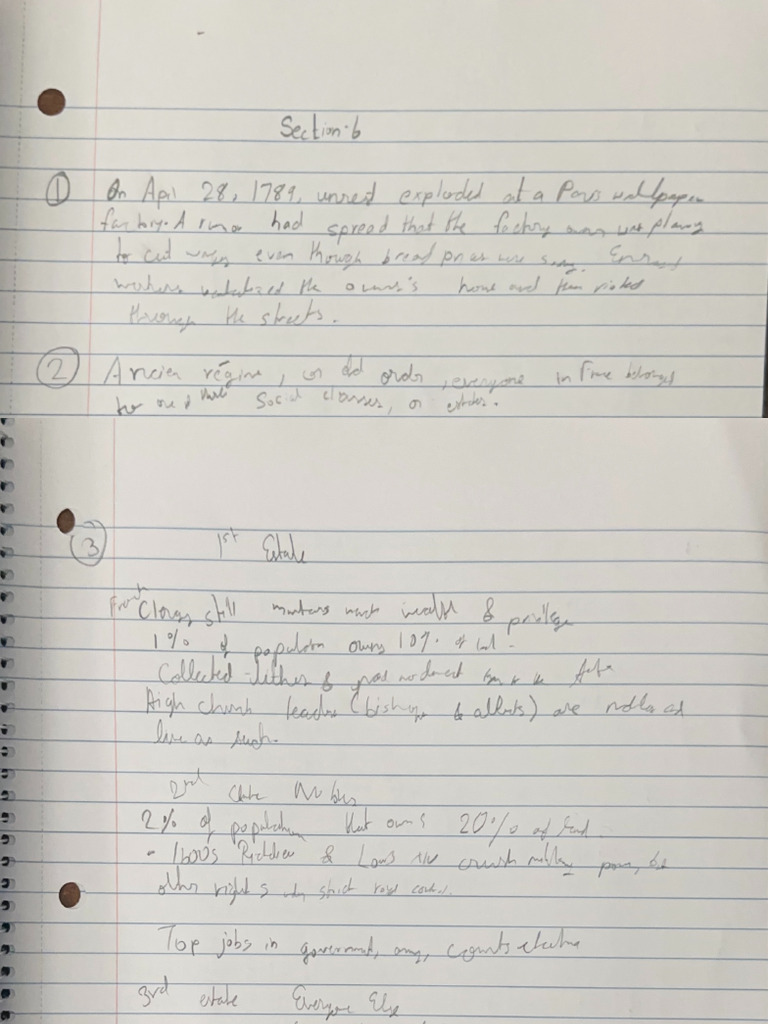 Section 6
① On April 28, 1789, unrest exploded at a Paris wallpaper
factory. A rumor had spread that the factory owner was planning
to cut wages even though bread prices were Enraged
workers vandalized the owner's home and then rioted
through the streets.
② Ancien régime, or old order, everyone in France belonged
to one of three social classes, or estates.
③ 1st Estate
French Clergy still wealth & privilege
1% of population owns 10% of land.
Collected tithes & paid no direct to the state
High church leaders (bishops & abbots) are nobles
live as such.
2nd Estate Nobles
2% of population that owns 20% of land.
- 1600s Richelieu & Louis XIV crush military power, but
other rights strict royal control.
Top jobs in government, army, courts
3rd estate Everyone Else